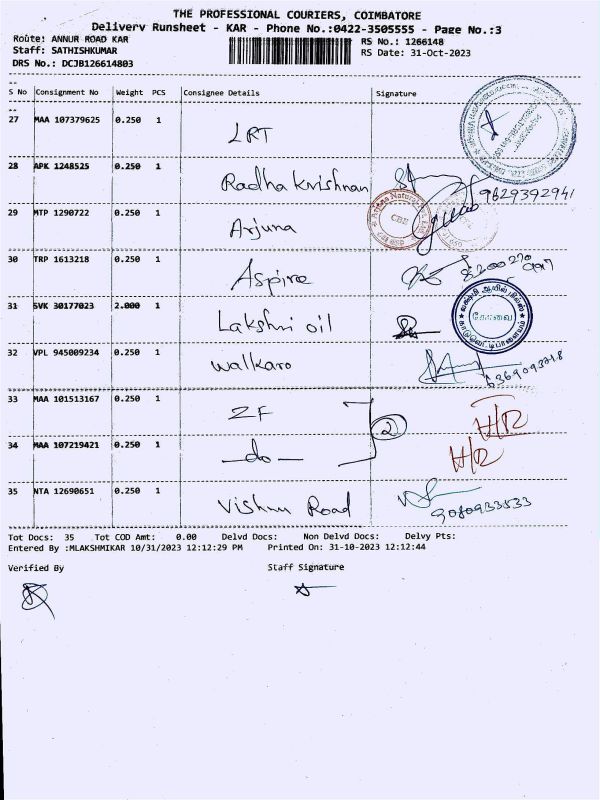 THE PROFESSIONAL COURIERS, COIMBATORE
Delivery Runsheet - KAR - Phone No.:0422-3505555 - Page No.:3
Route: ANNUR ROAD KAR
RS No.: 1266148
Staff: SATHISHKUMAR
RS Date: 31-Oct-2023
DRS No.: DCJB126614803
S No Consignment No Weight PCS Consignee Details Signature
27 MAA 107379625 0.250 1 LRT
28 APK 1248525 0.250 1 Radha krishnan 9629392941
29 MTP 1290722 0.250 1 Arjuna
30 TRP 1613218 0.250 1 Aspire
31 SVK 30177023 2.000 1 Lakshmi oil
32 VPL 945009234 0.250 1 walkaro 6369093718
33 MAA 101513167 0.250 1 ZF 2 H/R
34 MAA 107219421 0.250 1 -do- H/R
35 NTA 12690651 0.250 1 Vishnu Road 9080933533
Tot Docs: 35 Tot COD Amt: 0.00 Delvd Docs: Non Delvd Docs: Delvy Pts:
Entered By :MLAKSHMIKAR 10/31/2023 12:12:29 PM Printed On: 31-10-2023 12:12:44
Verified By Staff Signature